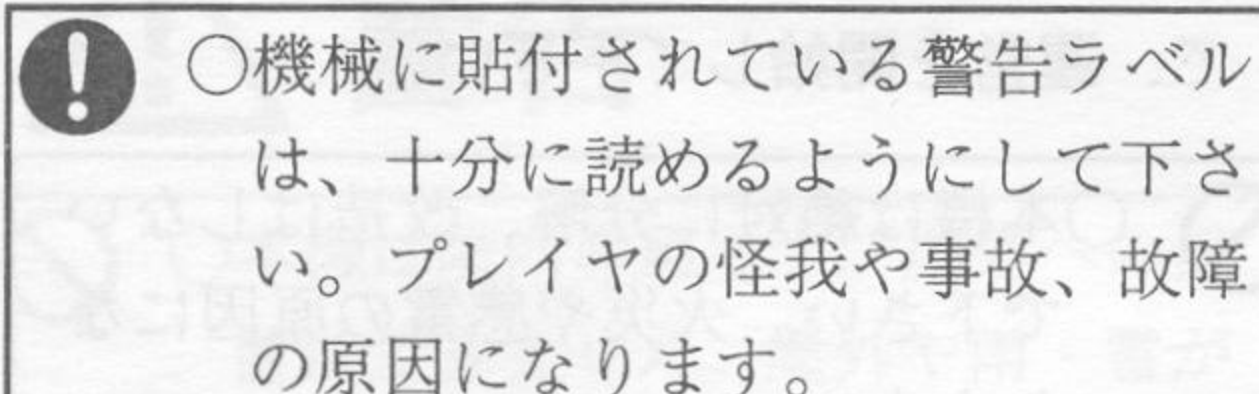 ○機械に貼付されている警告ラベル
は、十分に読めるようにして下さ
い。プレイヤの怪我や事故、故障
の原因になります。